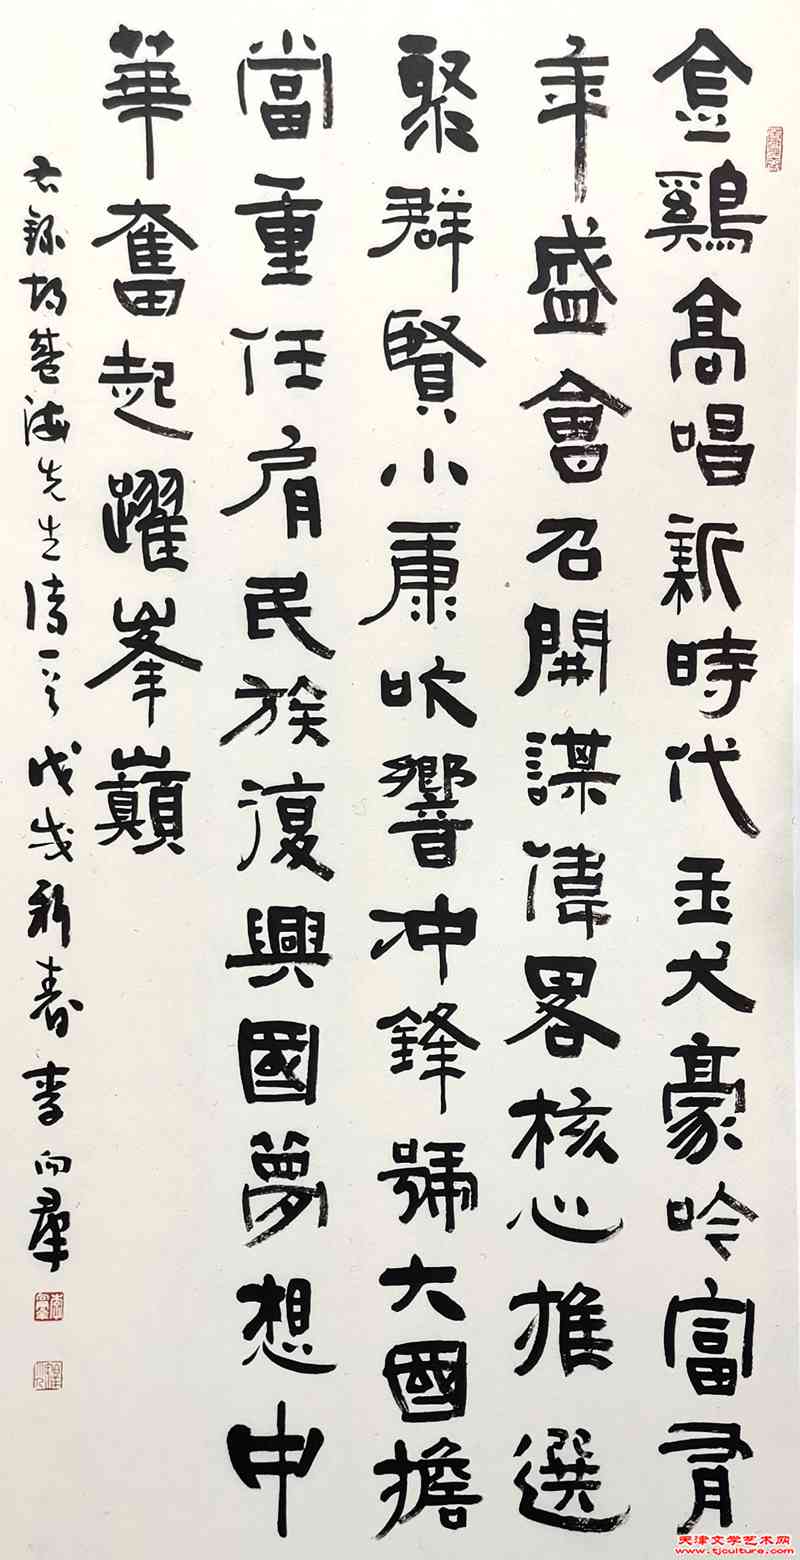 金鷄髙唱新時代玉犬豪吟富有
年盛會召開謀偉畧核心推選
聚群賢小康吹響冲鋒號大國擔
當重任肩民族復興國夢想中
華奮起躍峯巔
右錄海先生詩一首戊戌新春李向羣
天津文学艺术网
www.tjculture.com